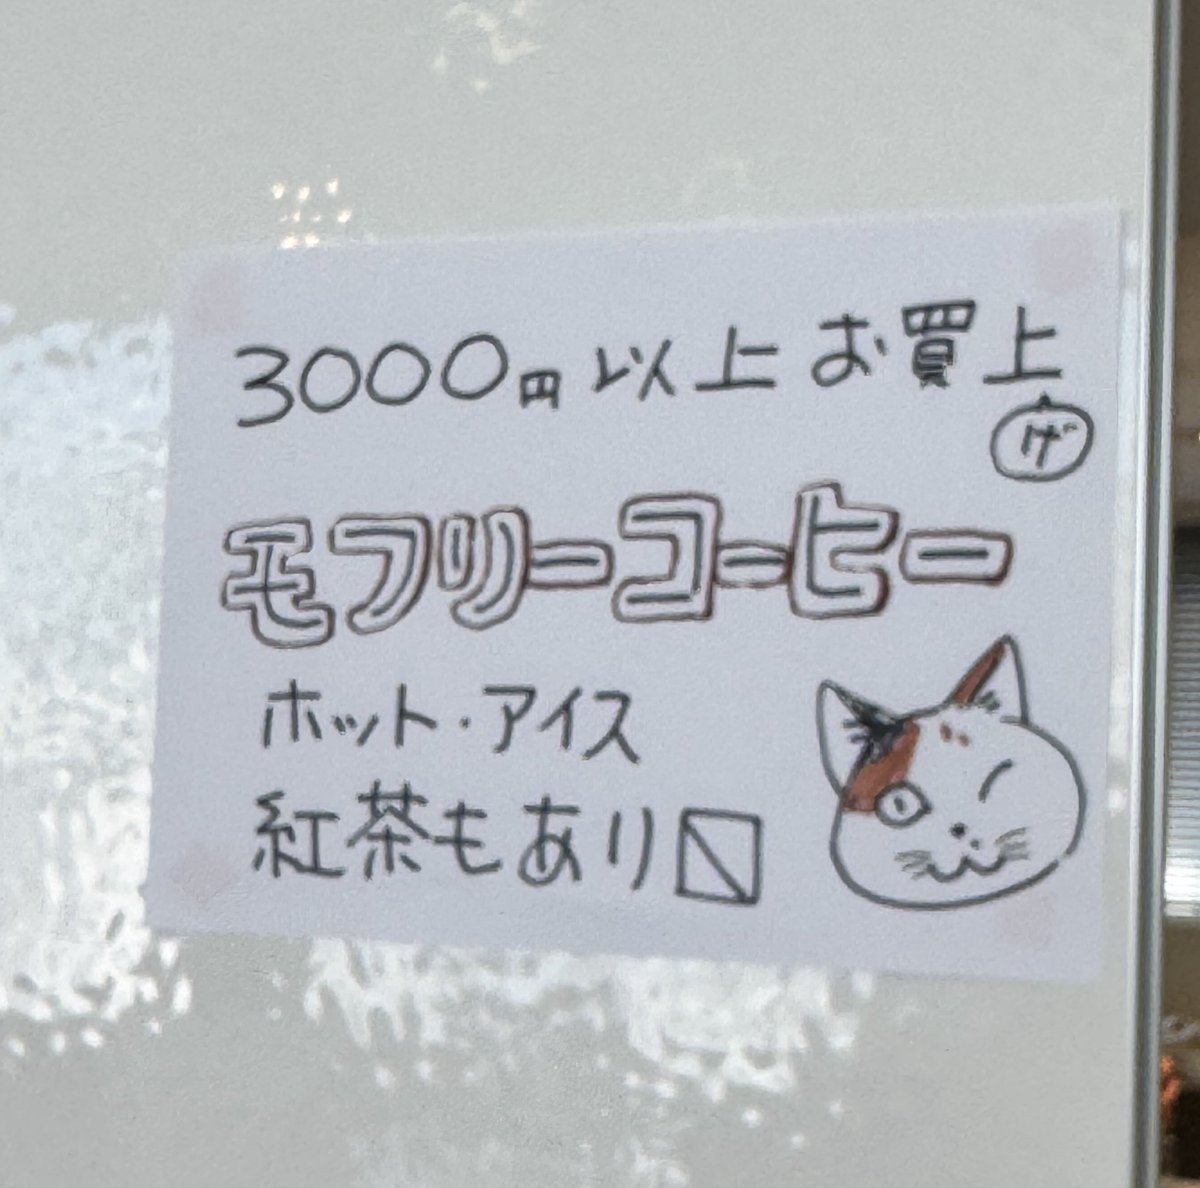 3000円以上お買上げ
モフリーコーヒー
ホット・アイス
紅茶もあり〼